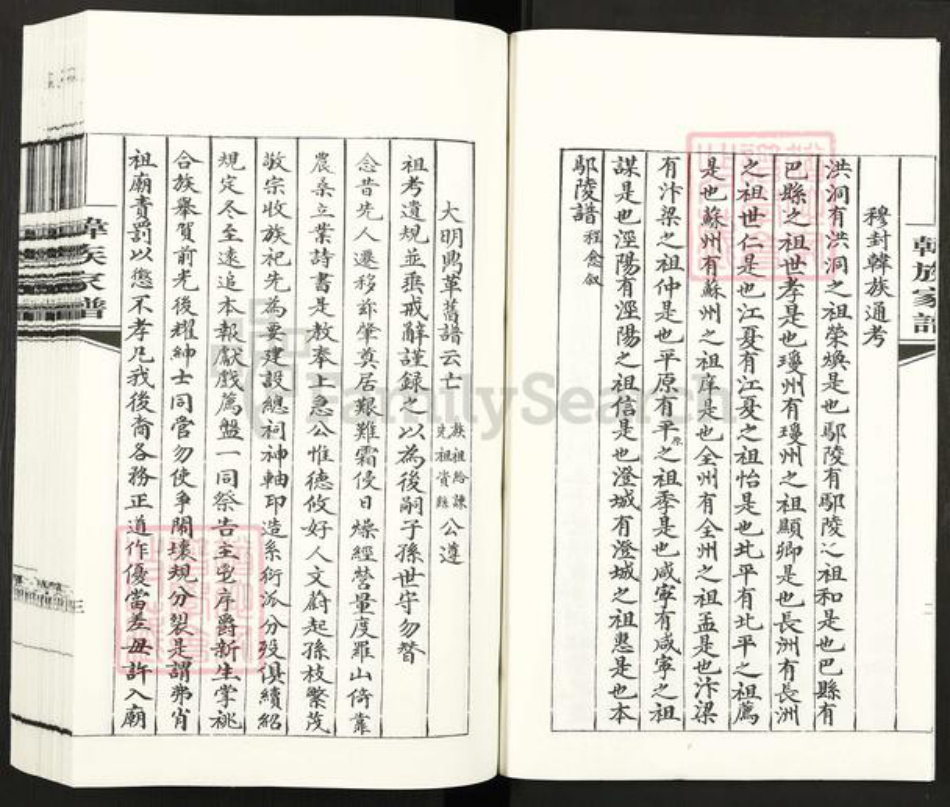 韓族家譜
穆封韓族通考
洪洞有洪洞之祖榮煥是也鄢陵有鄢陵之祖和是也巴縣有
巴縣之祖世孝是也瓊州有瓊州之祖顯卿是也長洲有長洲
之祖世仁是也江夏有江夏之祖怡是也北平有北平之祖薦
是也蘇州有蘇州之祖庠是也全州有全州之祖孟是也汴梁
有汴梁之祖仲是也平原有平原之祖季是也咸寧有咸寧之祖
謀是也涇陽有涇陽之祖信是也澄城有澄城之祖惠是也本
鄢陵譜 程愈叙
二
大明鼎革舊譜云亡 族祖給諫 先祖資縣 公遵
祖考遺規並垂戒辭謹録之以為後嗣子孫世守勿替
念昔先人遷移莭肇奠居艱難霜侵日燥經營量度羅山倚靠
農桑立業詩書是教奉上急公惟德攸好人文蔚起孫枝繁茂
敬宗收族祀先為要建設總祠神軸印造系衍派分殁俱續紹
規定冬至遠追本報獻戲薦盤一同祭告主鬯序爵新生掌祧
合族舉賀前光後耀紳士同嘗勿使爭鬧壞規分裂是謂弗肖
祖廟責罰以懲不孝凡我後裔各務正道作優當差毋許入廟
韓族家譜
三
FamilySearch